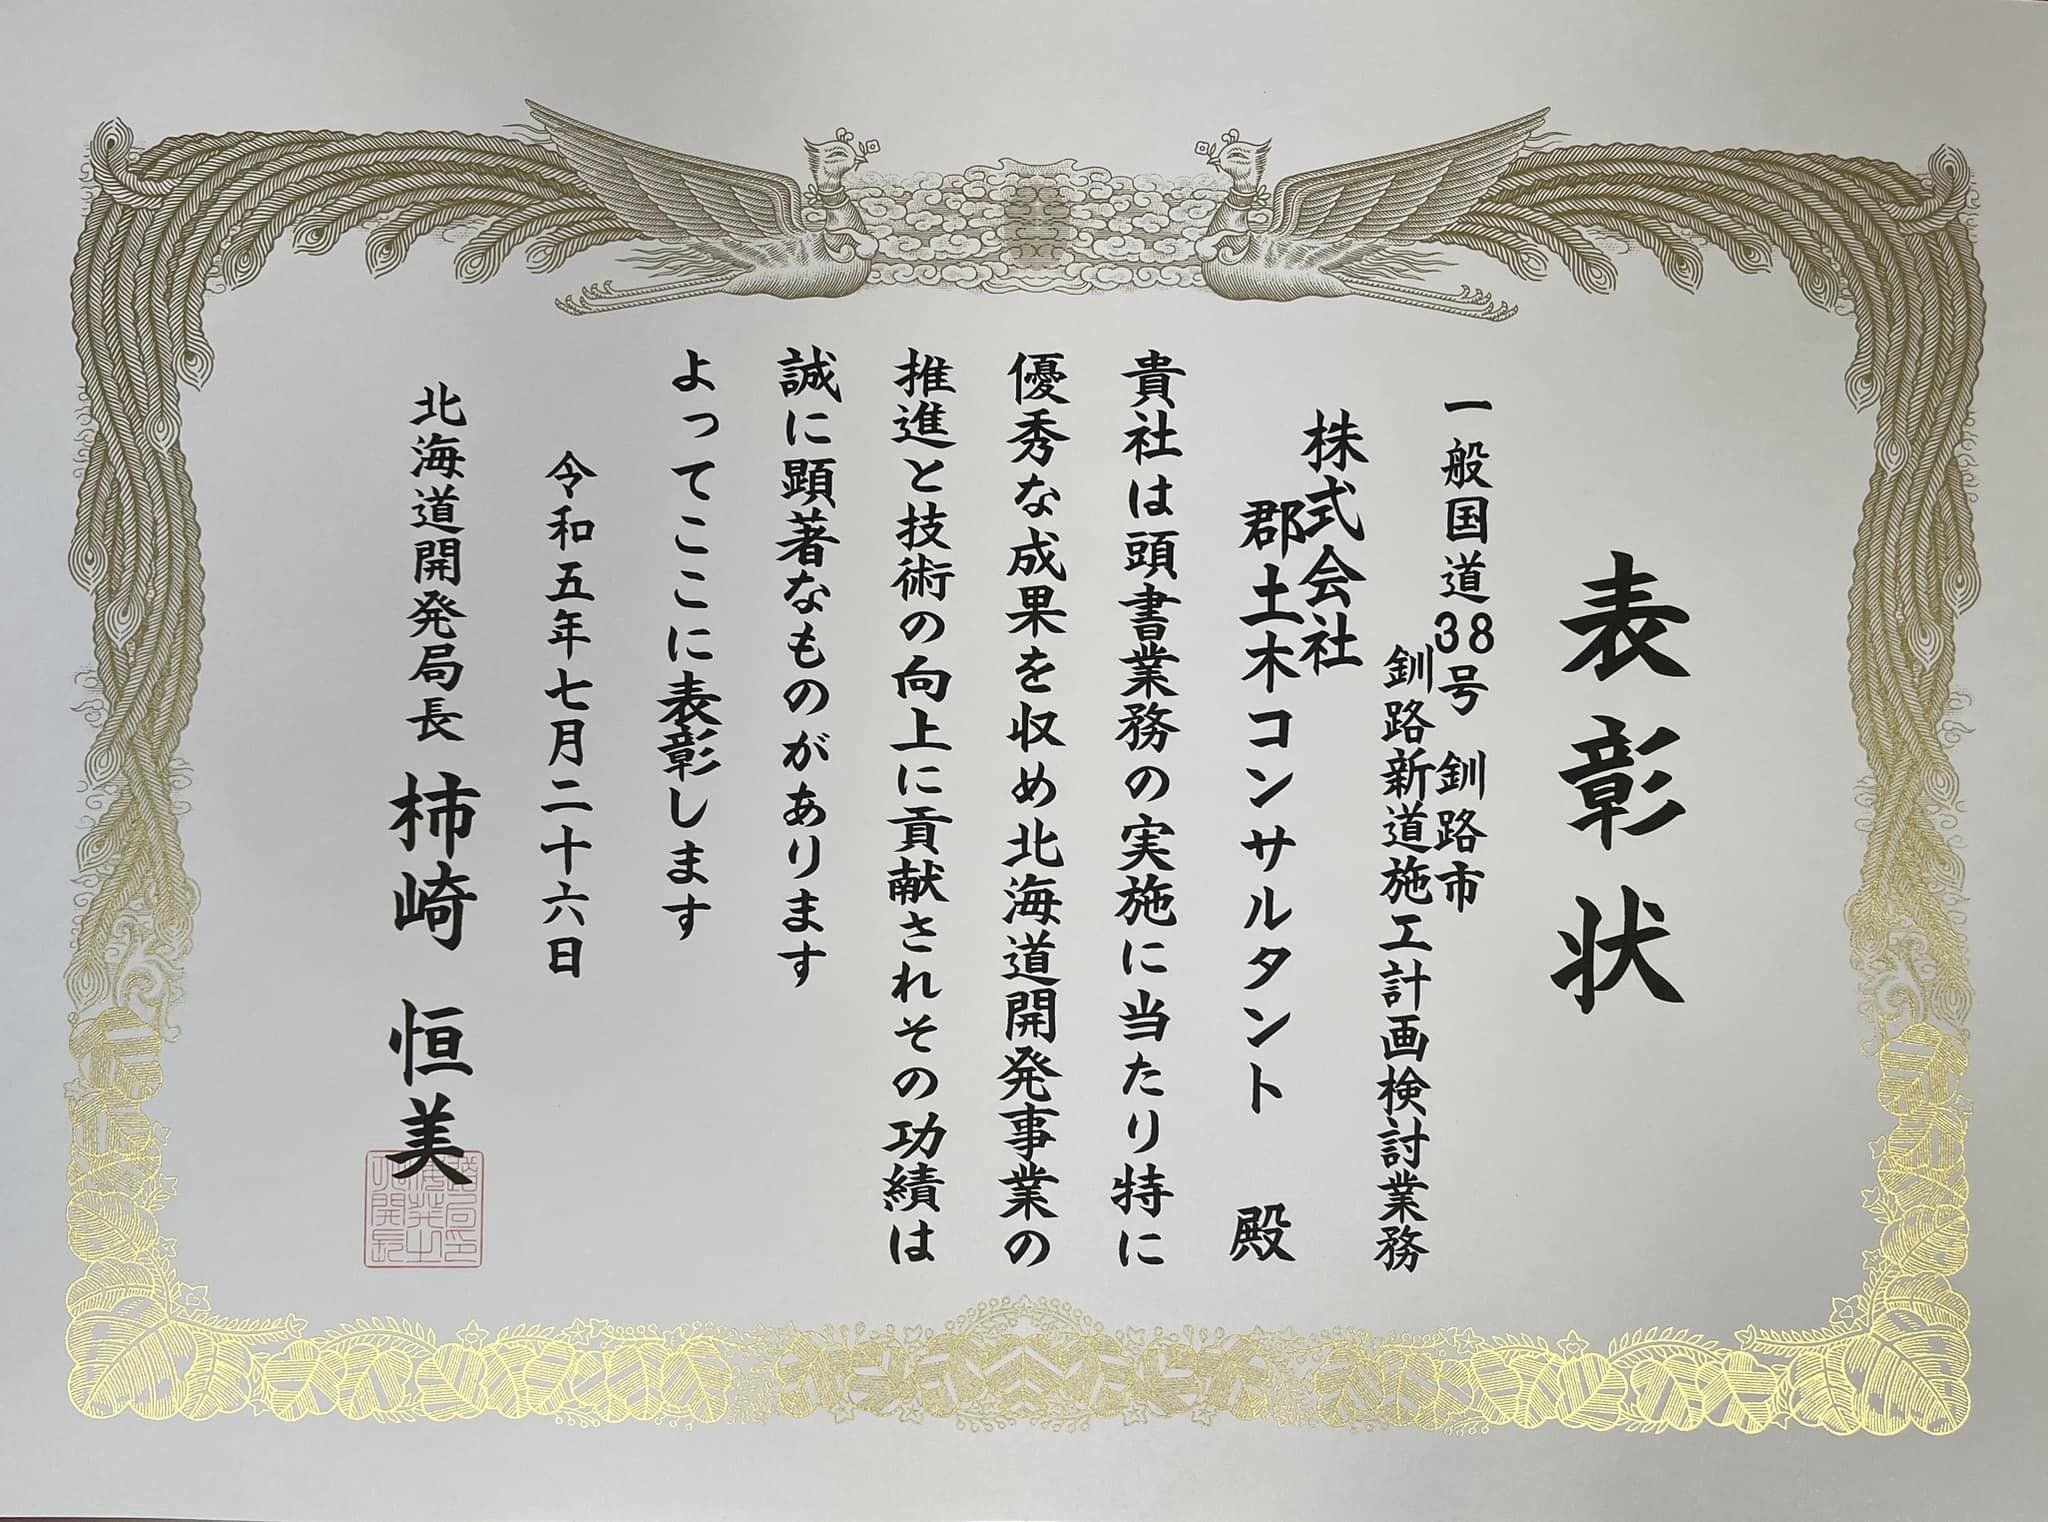 表彰状
一般国道38号 釧路市
釧路新道施工計画検討業務
株式会社
郡土木コンサルタント 殿
貴社は頭書業務の実施に当たり特に
優秀な成果を収め北海道開発事業の
推進と技術の向上に貢献されその功績は
誠に顕著なものがあります
よってここに表彰します
令和五年七月二十六日
北海道開発局長 柿崎 恒美